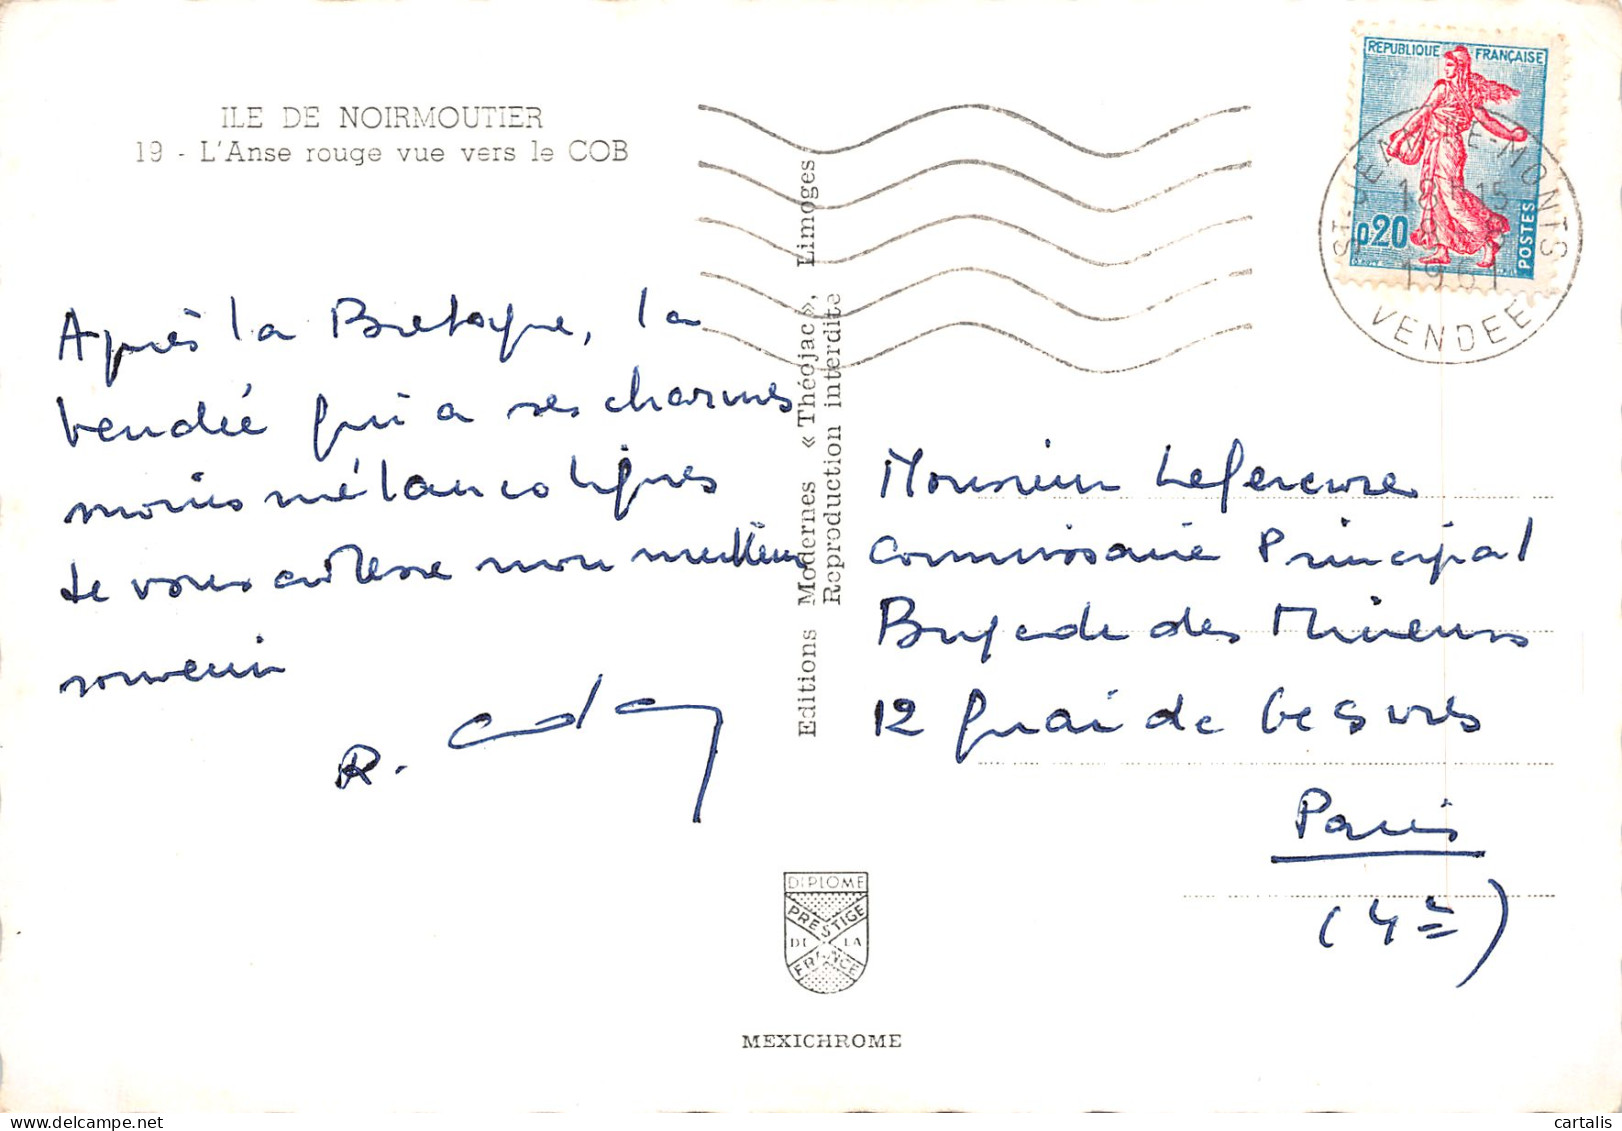 ILE DE NOIRMOUTIER
19 - L'Anse rouge vue vers le COB
Après la Bretagne, la
Vendée qui a ses charmes
moins mélancoliques
Je vous adresse mon meilleur
souvenir
R.
Editions Modernes « Théojac », Limoges
Reproduction interdite
REPUBLIQUE FRANÇAISE
0,20
POSTES
ST-JEAN-DE-MONTS
18 H 15
1961
VENDEE
Monsieur Lefeuvre
Commissaire Principal
Brigade des Mineurs
12 quai de Gesvres
Paris
(4e)
DIPLOME
PRESTIGE
DE LA
FRANCE
MEXICHROME
cartalis
www.delcampe.net